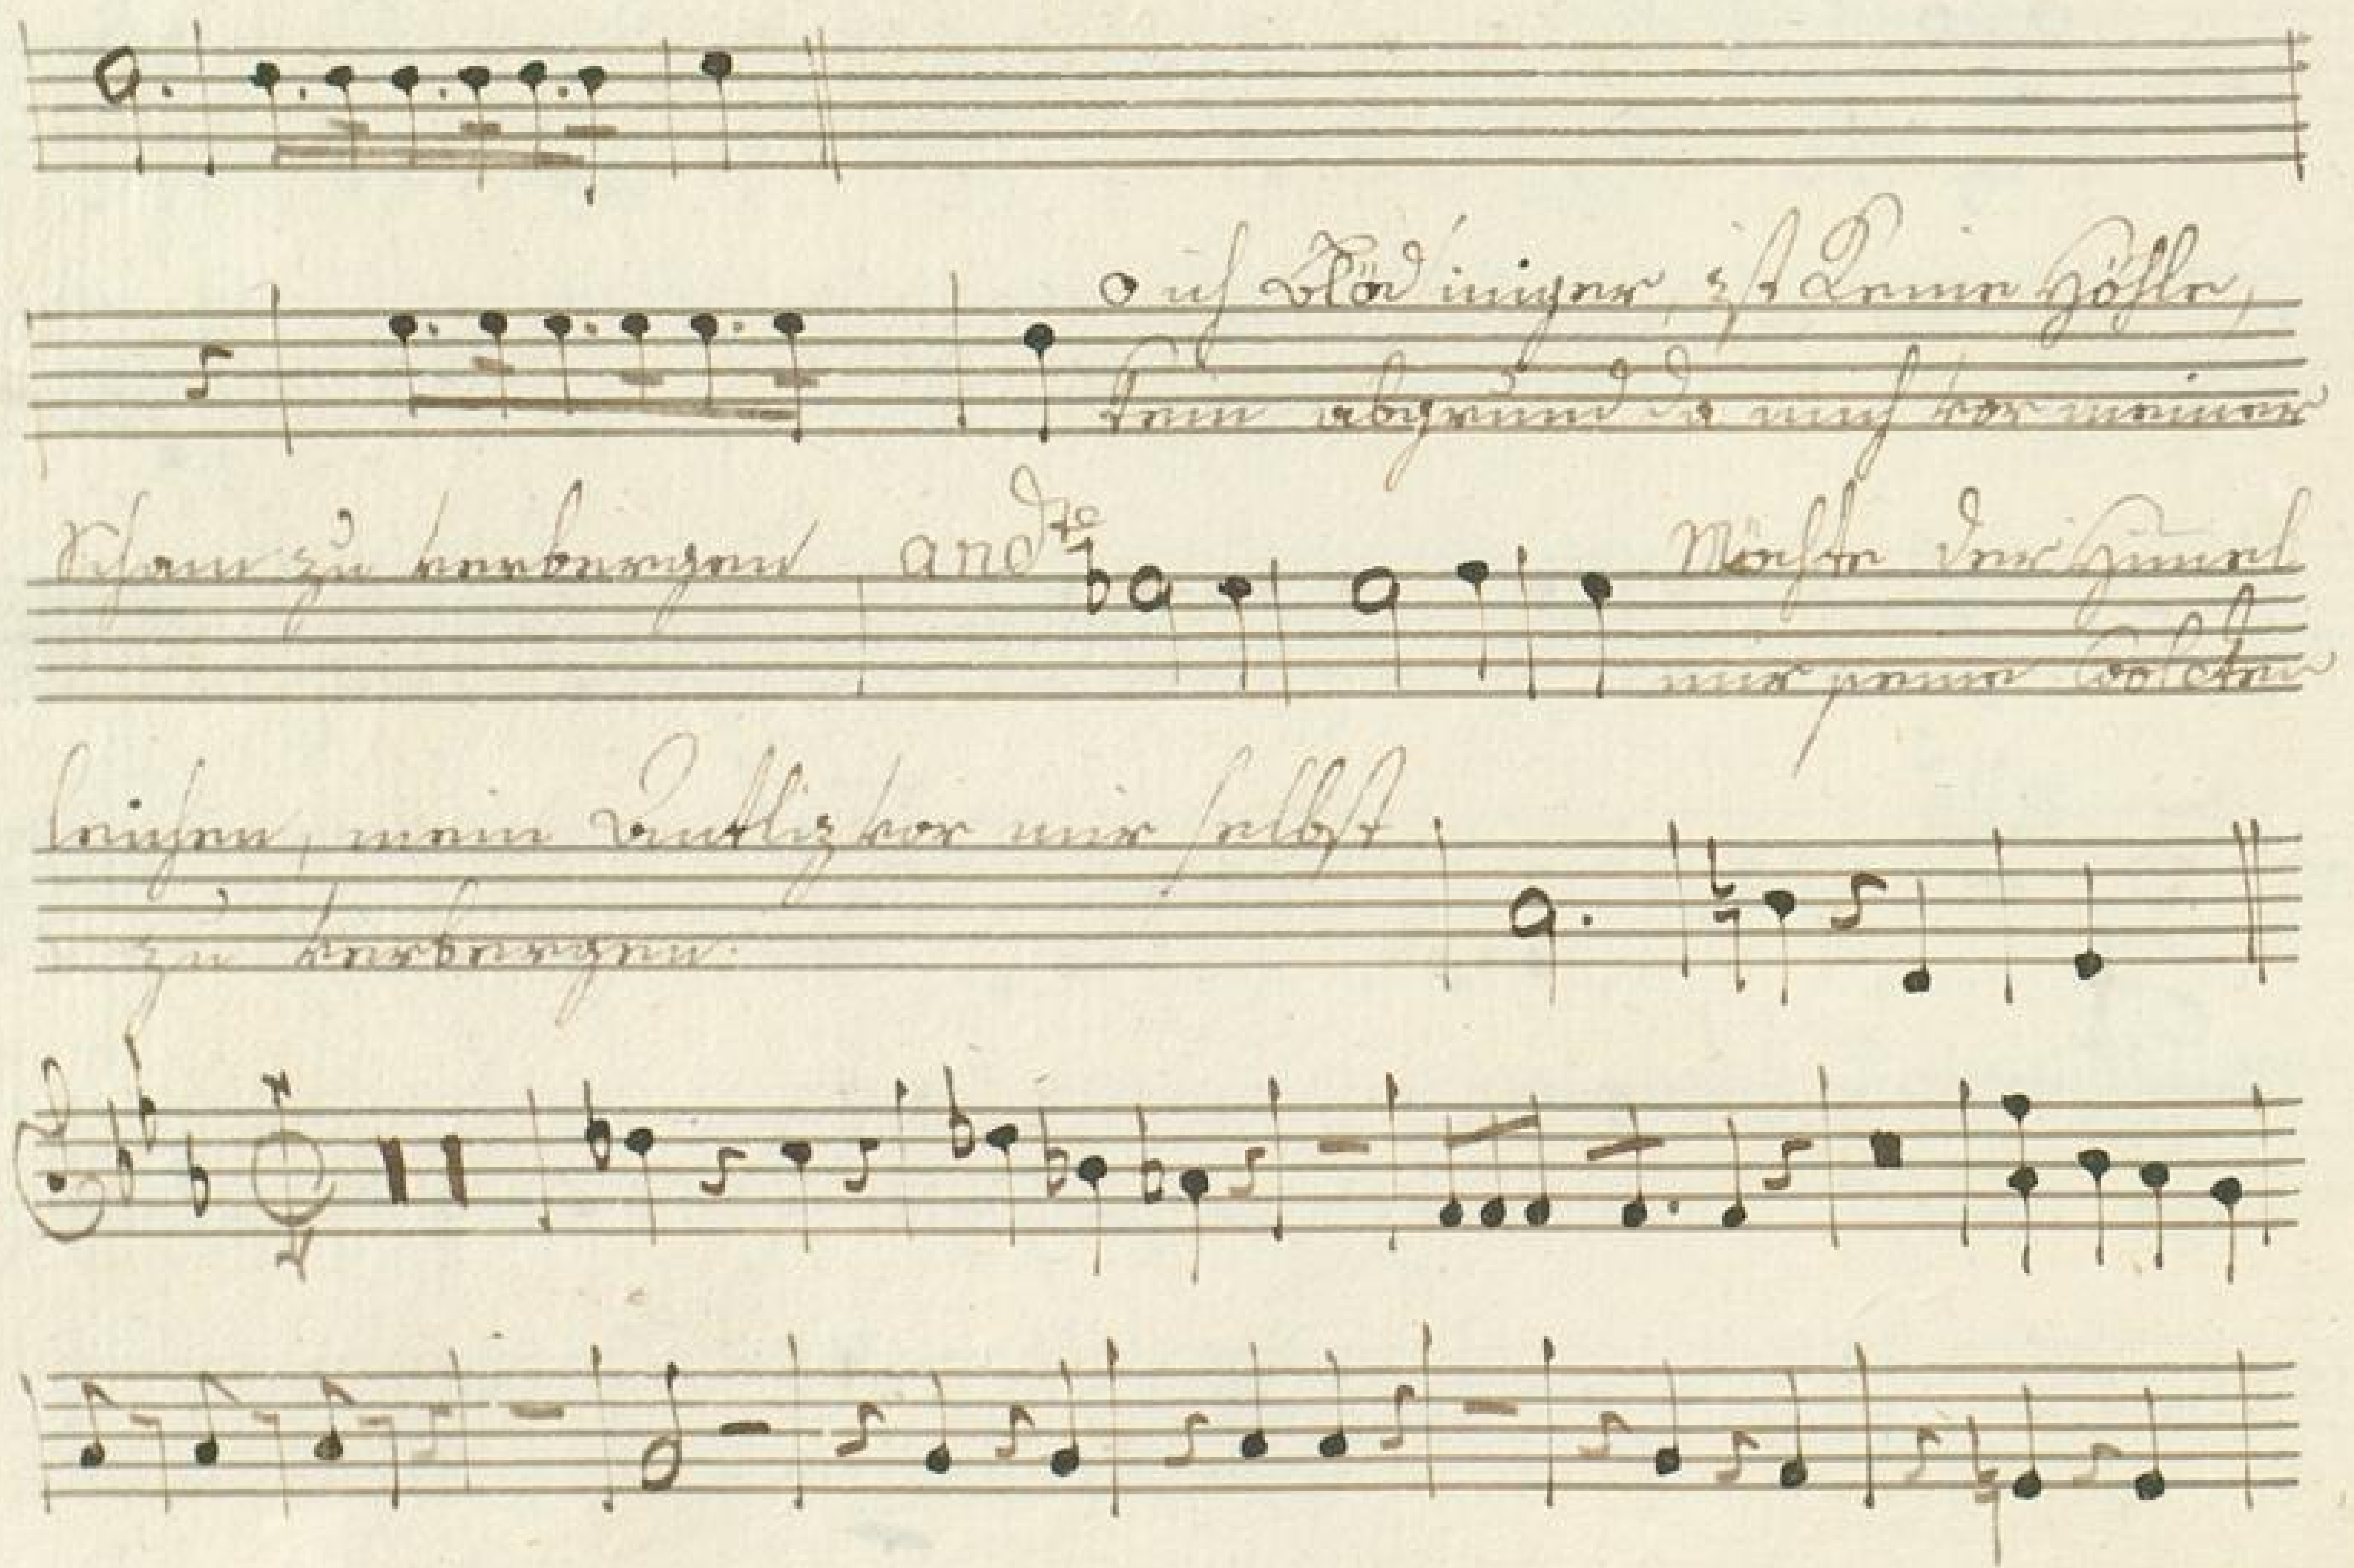 O ich Blödsiniger, ist Keine Höhle,
kein abgrund da mich vor meiner
Scham zu verbergen and.te Möchte der Himel
mir seine Wolcken
leichen, mein Antliz vor mir selbst
zu verbergen.